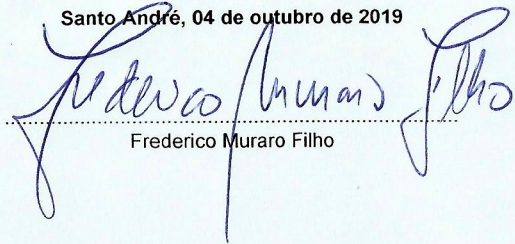 Santo André, 04 de outubro de 2019
Frederico Muraro Filho
Frederico Muraro Filho